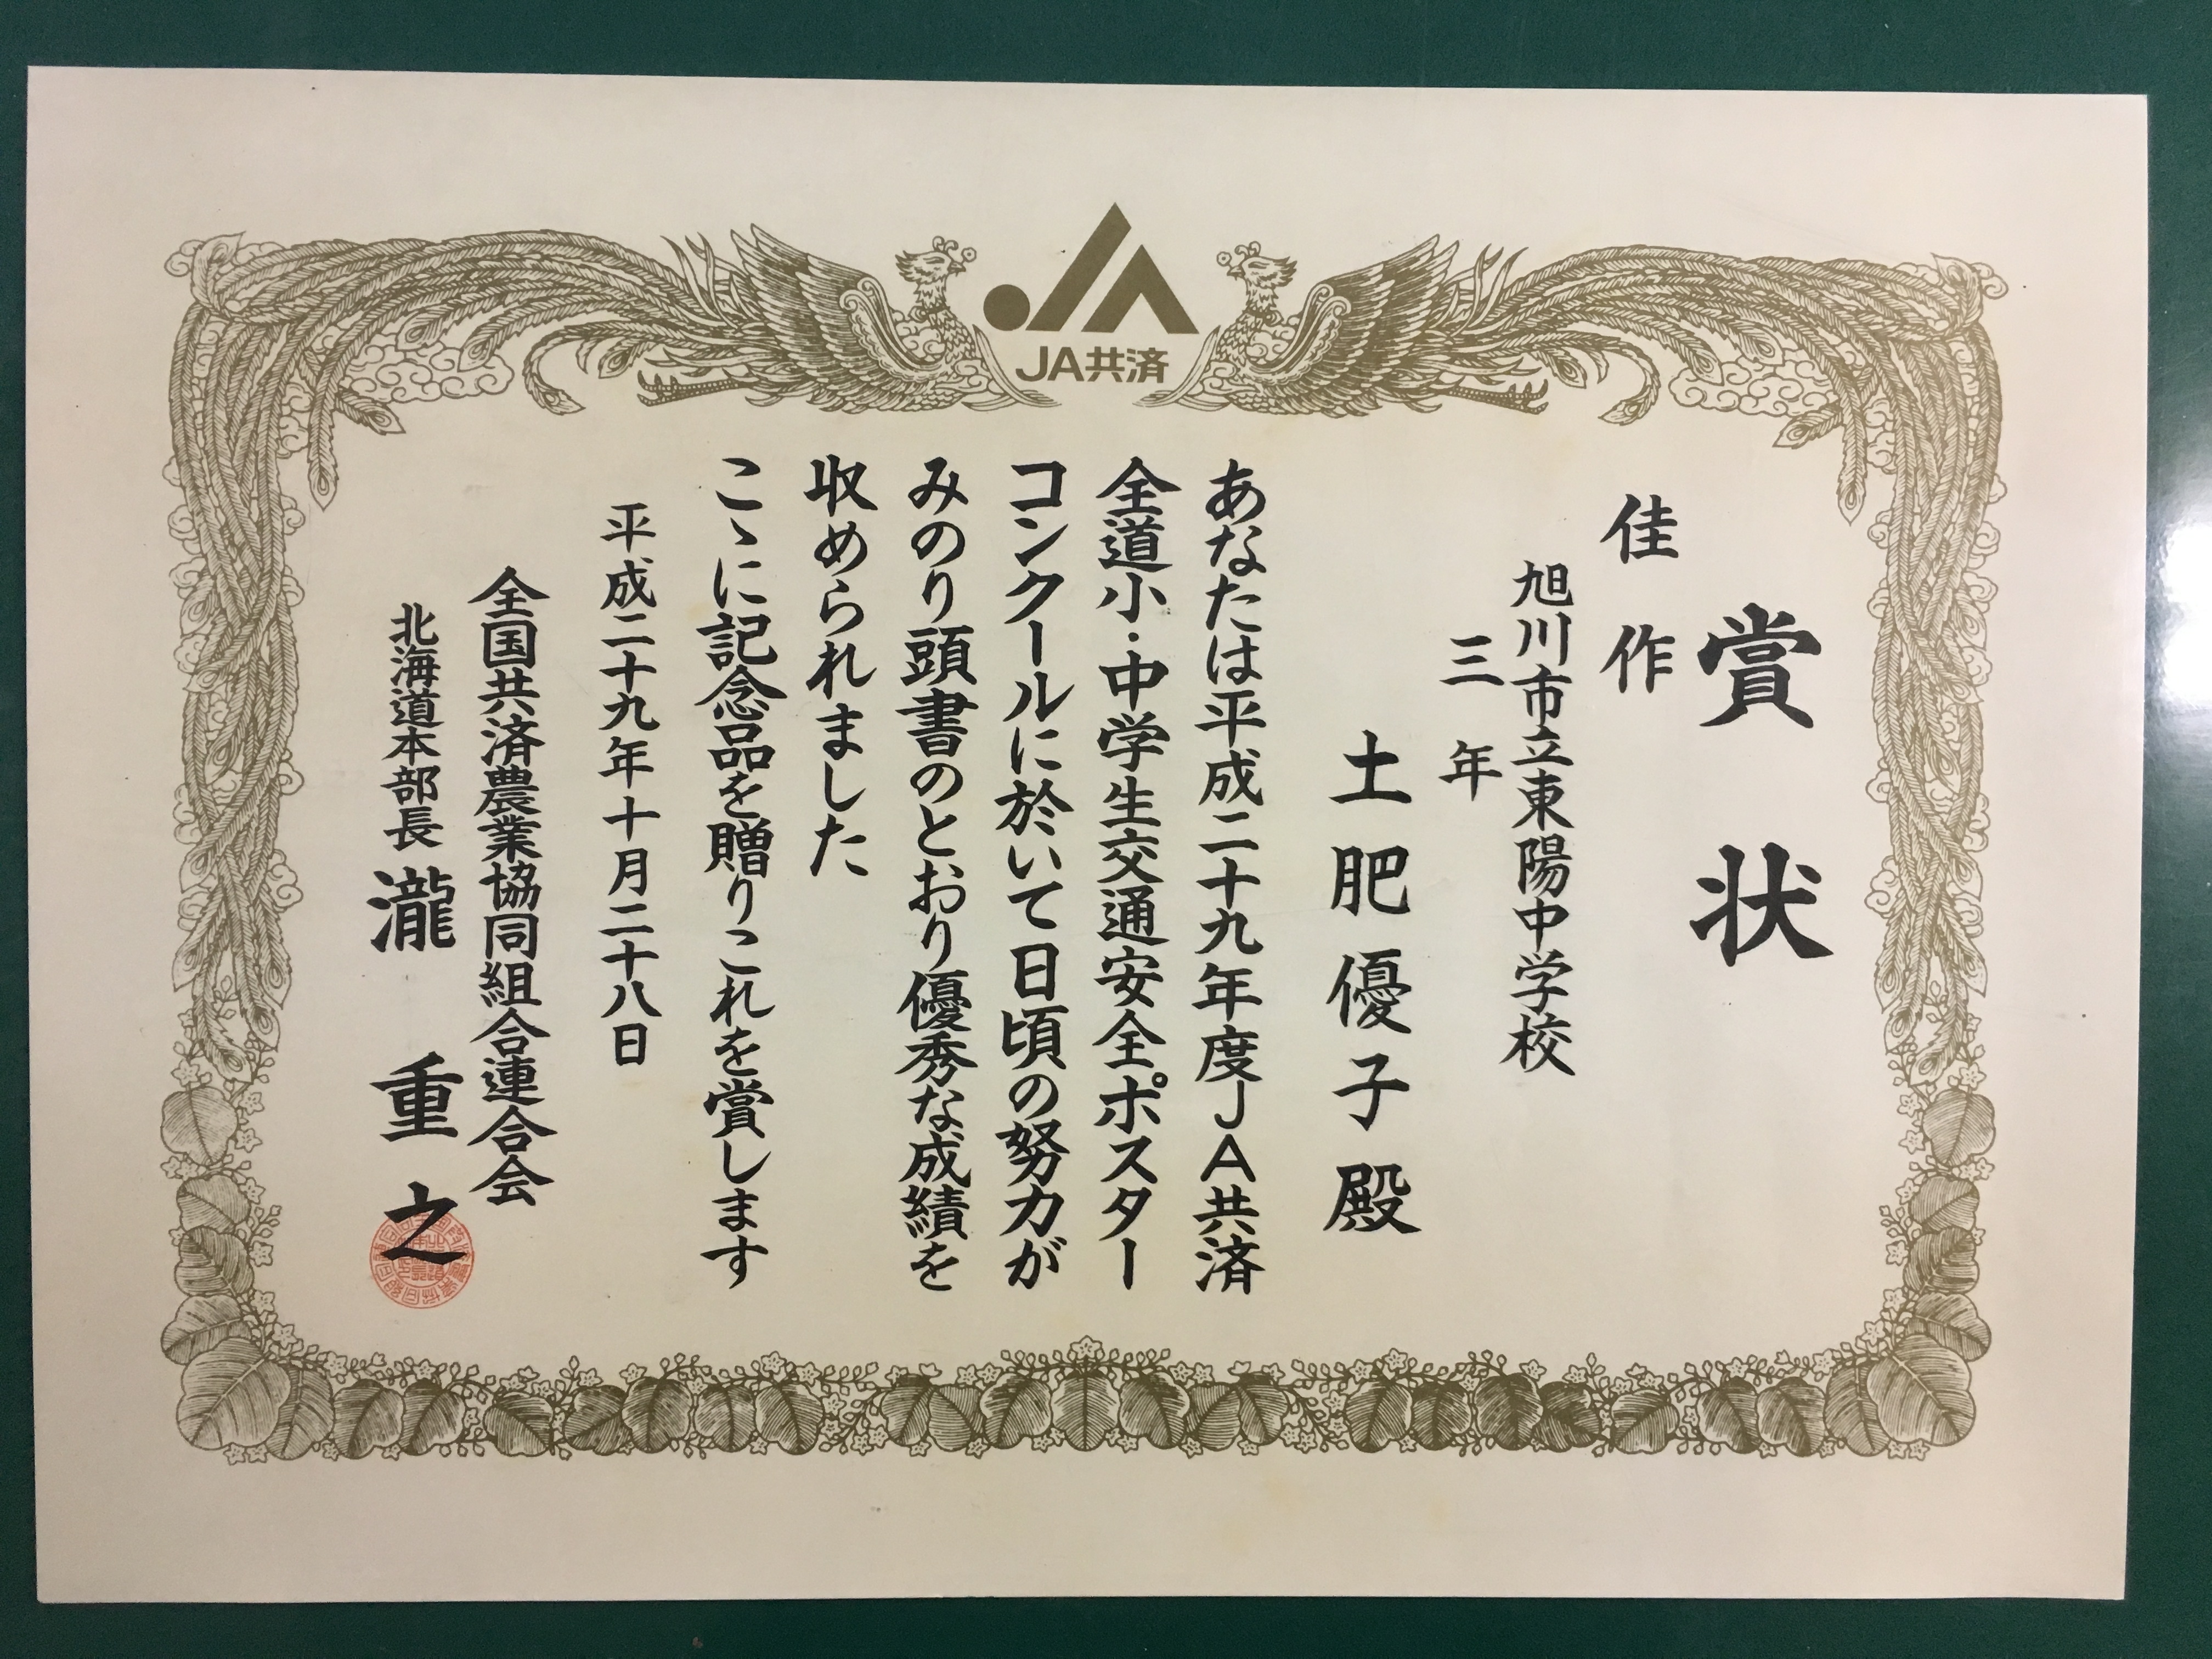 JA共済
賞状
佳作
旭川市立東陽中学校
三年
土肥優子殿
あなたは平成二十九年度JA共済
全道小・中学生交通安全ポスター
コンクールに於いて日頃の努力が
みのり頭書のとおり優秀な成績を
収められました
こゝに記念品を贈りこれを賞します
平成二十九年十月二十八日
全国共済農業協同組合連合会
北海道本部長 瀧重之